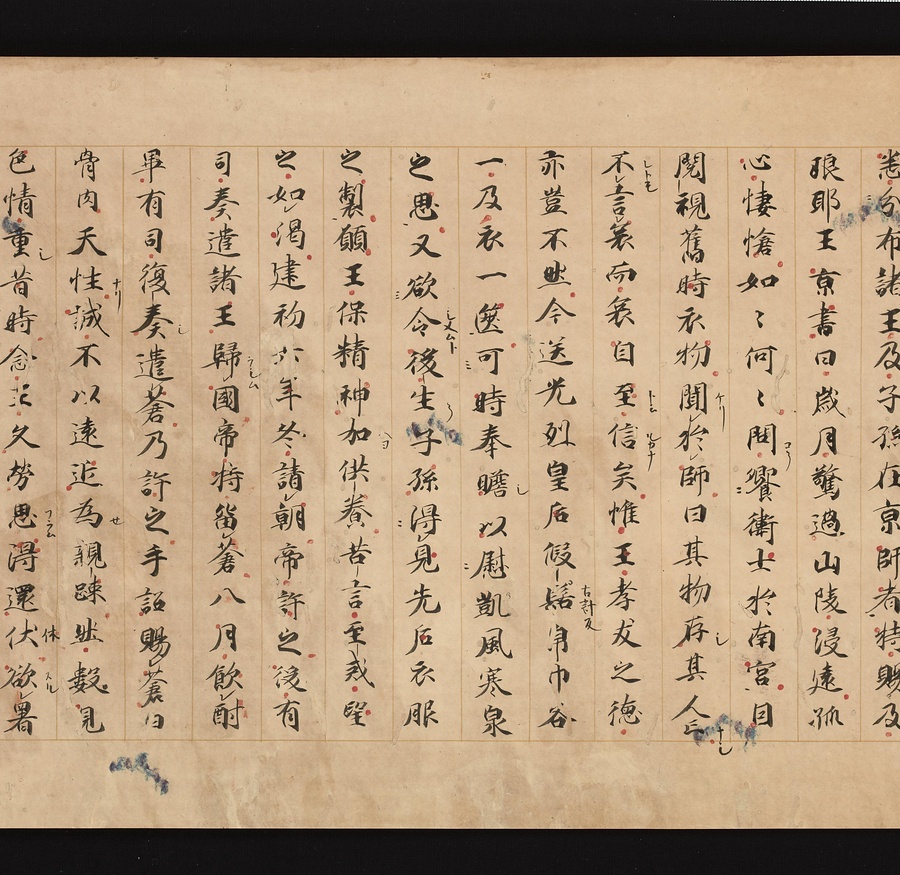 悉分布諸王及子孫在京師者特賜及
琅耶王京書曰歳月驚過山陵浸遠孤
心悽愴如〻何〻間饗衛士於南宮因
閲視舊時衣物聞於師曰其物存其人亡
不言哀而哀自至信矣惟王孝友之德
亦豈不然今送光烈皇后假髻帛巾各
一及衣一篋可時奉瞻以慰凱風寒泉
之思又欲令後生子孫得見先后衣服
之製願王保精神加供養苦言至戒望
之如渴建初六年冬請朝帝許之後有
司奏遣諸王歸國帝特留蒼八月飲酎
畢有司復奏遣蒼乃許之手詔賜蒼曰
骨肉天性誠不以遠近為親踈然數見
色情重昔時念王久勞思得還休欲署